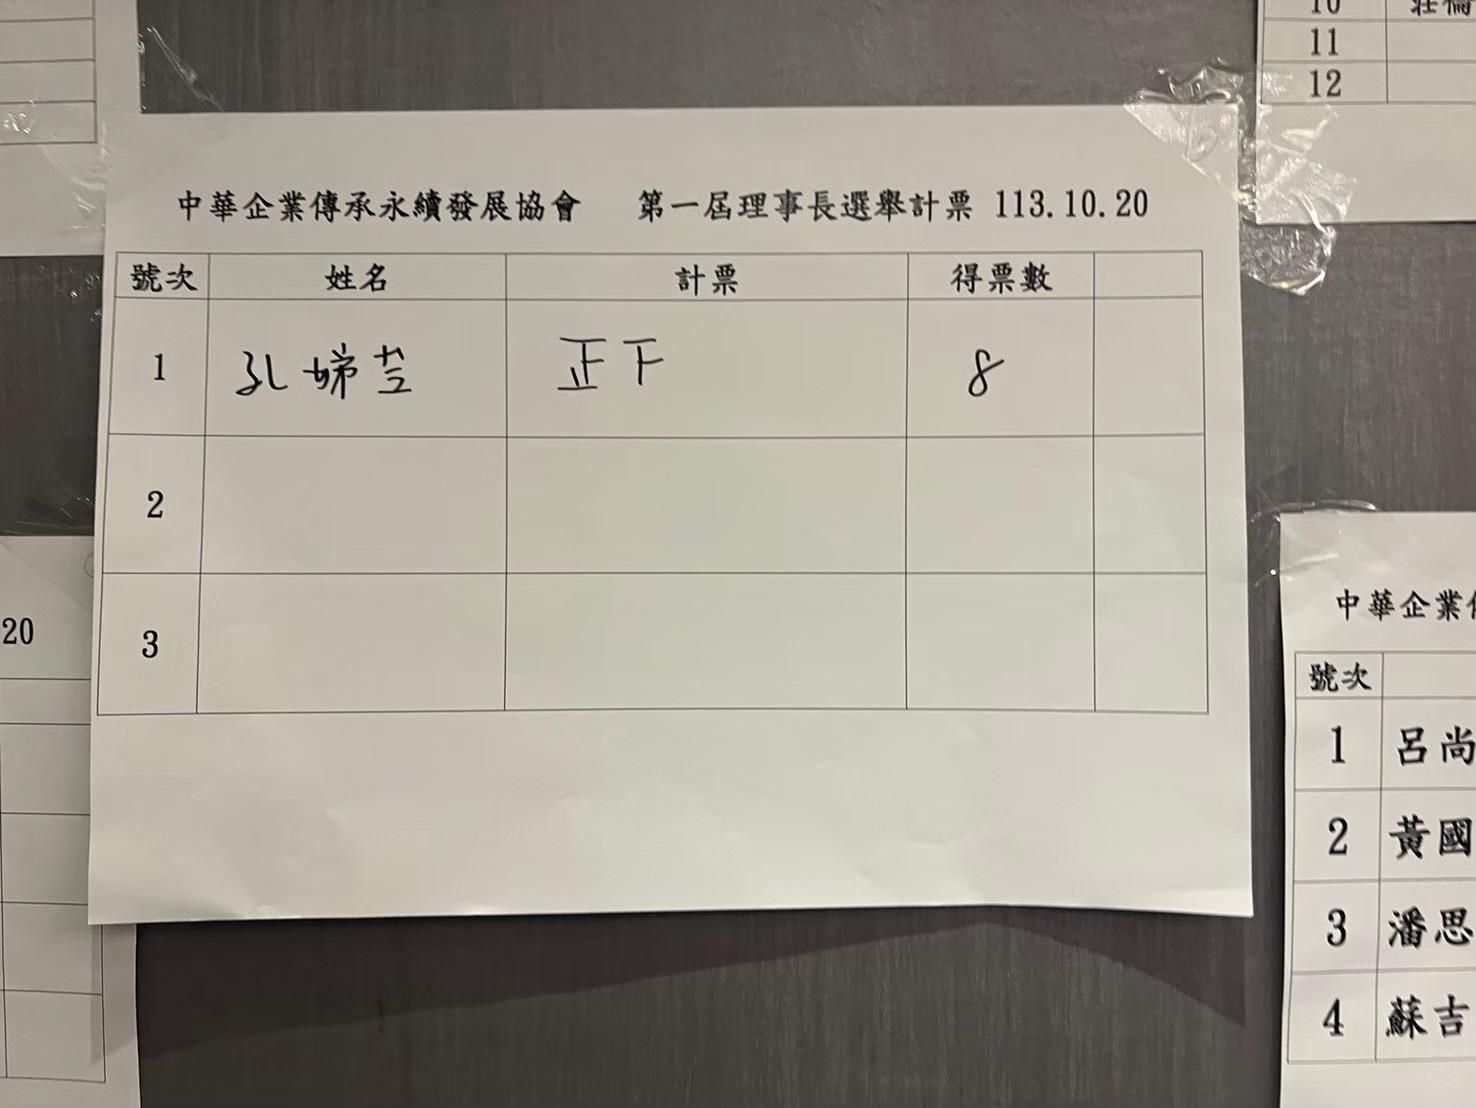 10
11
12
中華企業傳承永續發展協會 第一屆理事長選舉計票 113.10.20
號次 姓名 計票 得票數
1 孔娣芸 正下 8
2
3
20
中華企業
號次
1 呂尚
2 黃國
3 潘思
4 蘇吉